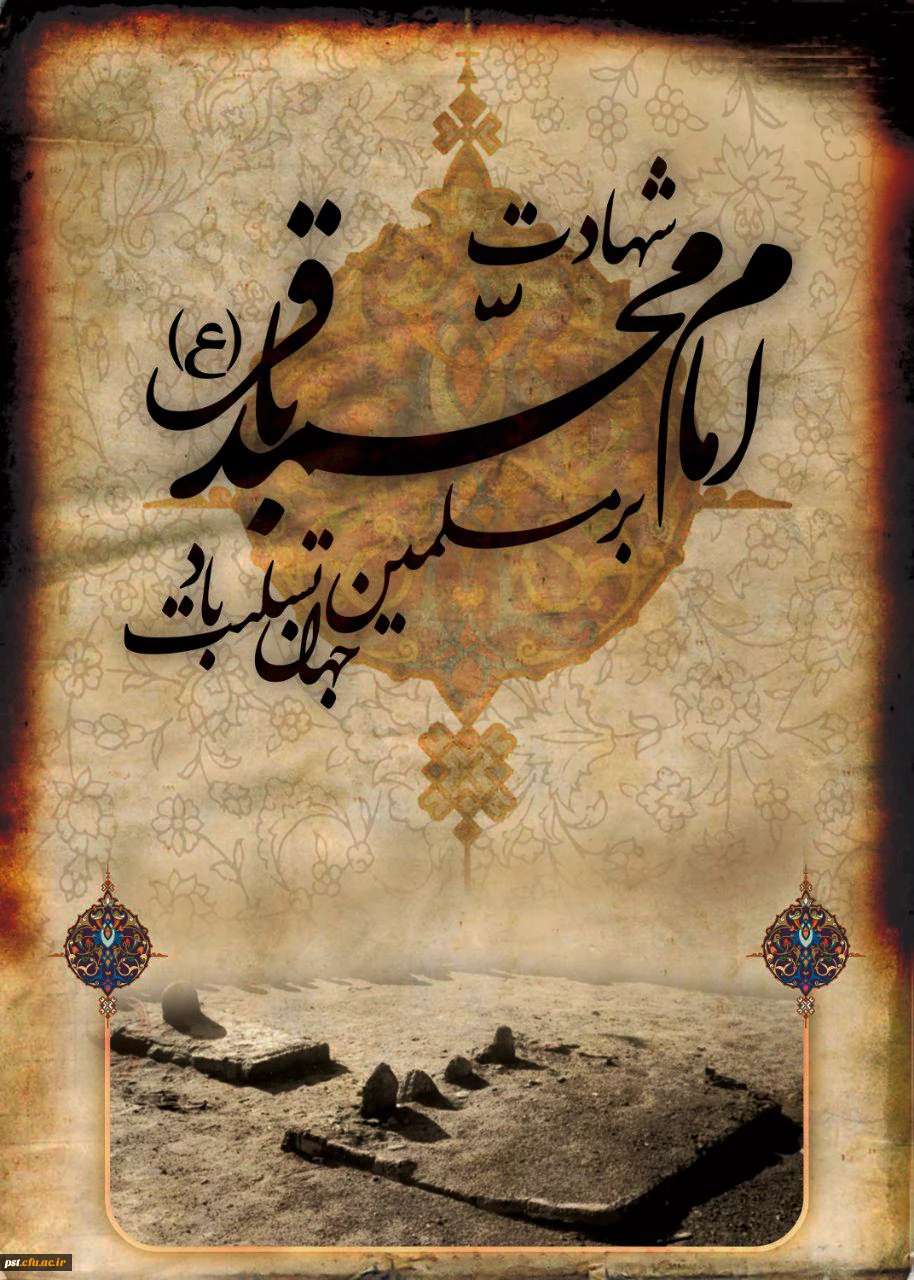 شهادت
امام محمّد باقر (ع)
بر مسلمین
جهان تسلیت باد
pst.cfu.ac.ir